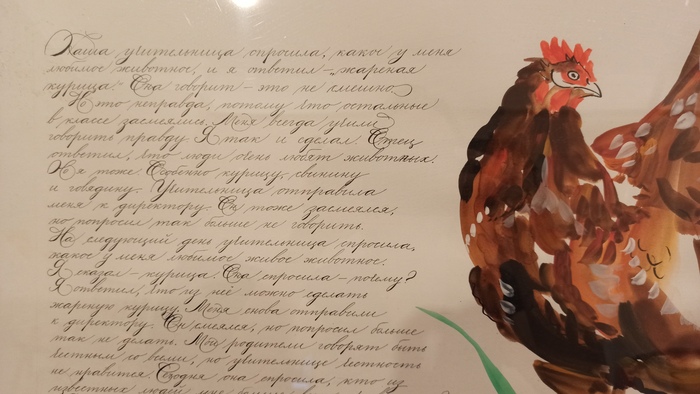 Наша учительница спросила, какое у меня
любимое животное, и я ответил – „жареная
курица“. Она говорит – это не смешно
Но это неправда, потому что остальные
в классе засмеялись. Меня всегда учили
говорить правду. Я так и сделал. Отец
ответил, что люди очень любят животных.
Но я тоже. Особенно курицу, свинину
и говядину. Учительница отправила
меня к директору. Он тоже засмеялся,
но попросил так больше не говорить.
На следующий день учительница спросила,
какое у меня любимое живое животное.
Я сказал – курица. Она спросила – почему?
Я ответил, что из неё можно сделать
жареную курицу. Меня снова отправили
к директору. Он смеялся, но попросил больше
так не делать. Мои родители говорят быть
честным со всеми, но учительнице честность
не нравится. Сегодня она спросила, кто из
известных людей мне